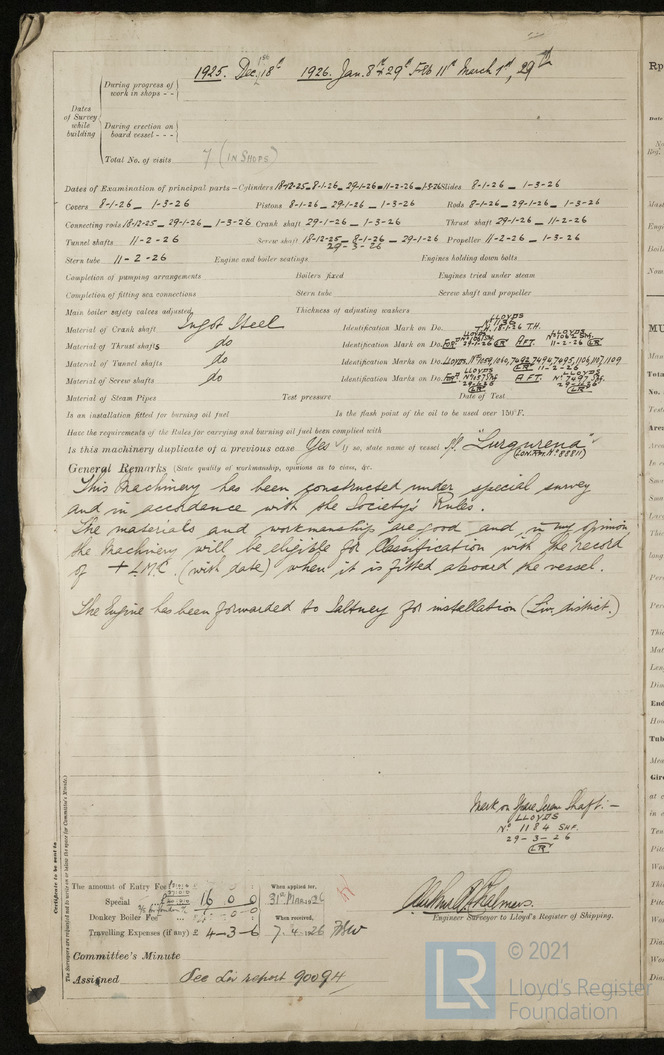 1925. Dec. 18th 1926. Jan. 8th & 29th Feb 11th March 1st, 29th
During progress of
work in shops - -
Dates
of Survey
while
building
During erection on
board vessel - - -
Total No. of visits 7 (IN SHOPS)
Dates of Examination of principal parts—Cylinders 18-12-25_8-1-26_29-1-26_11-2-26_1-3-26 Slides 8-1-26 _ 1-3-26
Covers 8-1-26 _ 1-3-26 Pistons 8-1-26 _ 29-1-26 _ 1-3-26 Rods 8-1-26 _ 29-1-26 _ 1-3-26
Connecting rods 18-12-25 _ 29-1-26 _ 1-3-26 Crank shaft 29-1-26 _ 1-3-26 Thrust shaft 29-1-26 _ 11-2-26
Tunnel shafts 11-2-26 Screw shaft 18-12-25_ 8-1-26 _ 29-1-26 Propeller 11-2-26 _ 1-3-26
29-3-26
Stern tube 11-2-26 Engine and boiler seatings Engines holding down bolts
Completion of pumping arrangements Boilers fixed Engines tried under steam
Completion of fitting sea connections Stern tube Screw shaft and propeller
Main boiler safety valves adjusted Thickness of adjusting washers
Material of Crank shaft Ingot Steel Identification Mark on Do. LLOYDS T.H. 18-1-26 T.H.
Material of Thrust shafts do Identification Mark on Do. FOR'D 29-1-26 LR AFT. 11-2-26 LR
Material of Tunnel shafts do Identification Marks on Do. LLOYDS Nos 1059, 1060, 7492, 7494, 7695, 1106, 1107, 1109
LR 11-2-26
Material of Screw shafts do Identification Marks on Do. FOR'D LLOYDS LR AFT. LLOYDS LR
Material of Steam Pipes Test pressure Date of Test
Is an installation fitted for burning oil fuel Is the flash point of the oil to be used over 150°F.
Have the requirements of the Rules for carrying and burning oil fuel been complied with
Is this machinery duplicate of a previous case Yes If so, state name of vessel "Lurgurena"
(LON. RPT. No 88811)
General Remarks (State quality of workmanship, opinions as to class, &c.
This Machinery has been constructed under special survey
and in accordance with the Society's Rules.
The materials and workmanship are good and in my opinion
the Machinery will be eligible for Classification with the record
of + L.M.C. (with date) when it is fitted aboard the vessel.
The Engine has been forwarded to Saltney for installation (Liv. district.)
Mark on Spare Screw Shaft:-
LLOYDS
No 1184 SHF.
29-3-26
LR
Certificate to be sent to
The Surveyors are requested not to write on or below the space for Committee's Minute.)
The amount of Entry Fee When applied for,
Special £ 16 0 0 31st MAR 1926
Donkey Boiler Fee When received,
Travelling Expenses (if any) £ 4-3-6 7. 4. 1926
Engineer Surveyor to Lloyd's Register of Shipping.
Committee's Minute
Assigned See Liv report 90094
© 2021
LR
Lloyd's Register
Foundation